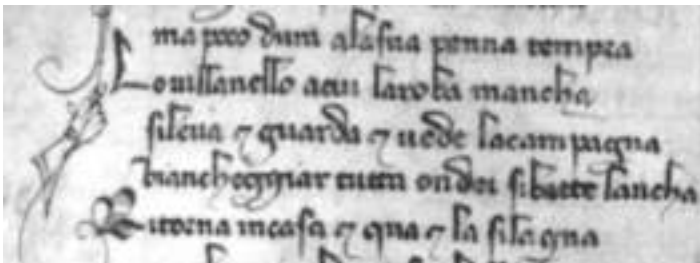 ma poco dura alasua penna tempra
Lo uillanello acui laroba mancha
sileua ⁊ guarda ⁊ uede lacampagna
biancheggiar tutta ondei sibatte lancha
Ritorna incasa ⁊ qua ⁊ la silagna